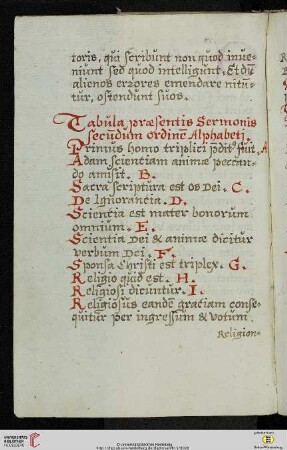 toris, qui scribunt non quod inue-
niunt sed quod intelligunt. Et dū
alienos errores emendare nitūn-
tur, ostendunt suos.
Tabula præsentis Sermonis
secundum ordinē Alphabeti
Primus homo triplici p̄dit⁹ fuit. A
Adam scientiam animæ peccan-
do amisit. B.
Sacra scriptura est os Dei. C.
De Ignorantia. D.
Scientia est mater bonorum
omnium. E.
Scientia Dei & animæ dicitur
verbum Dei. F.
Sponsa Christi est triplex. G.
Religio quid est. H.
Religiosi dicuntur. I.
Religiosus eandē gratiam conse-
quitur per ingressum & votum.
Religion-
UNIVERSITÄTS-
BIBLIOTHEK
HEIDELBERG